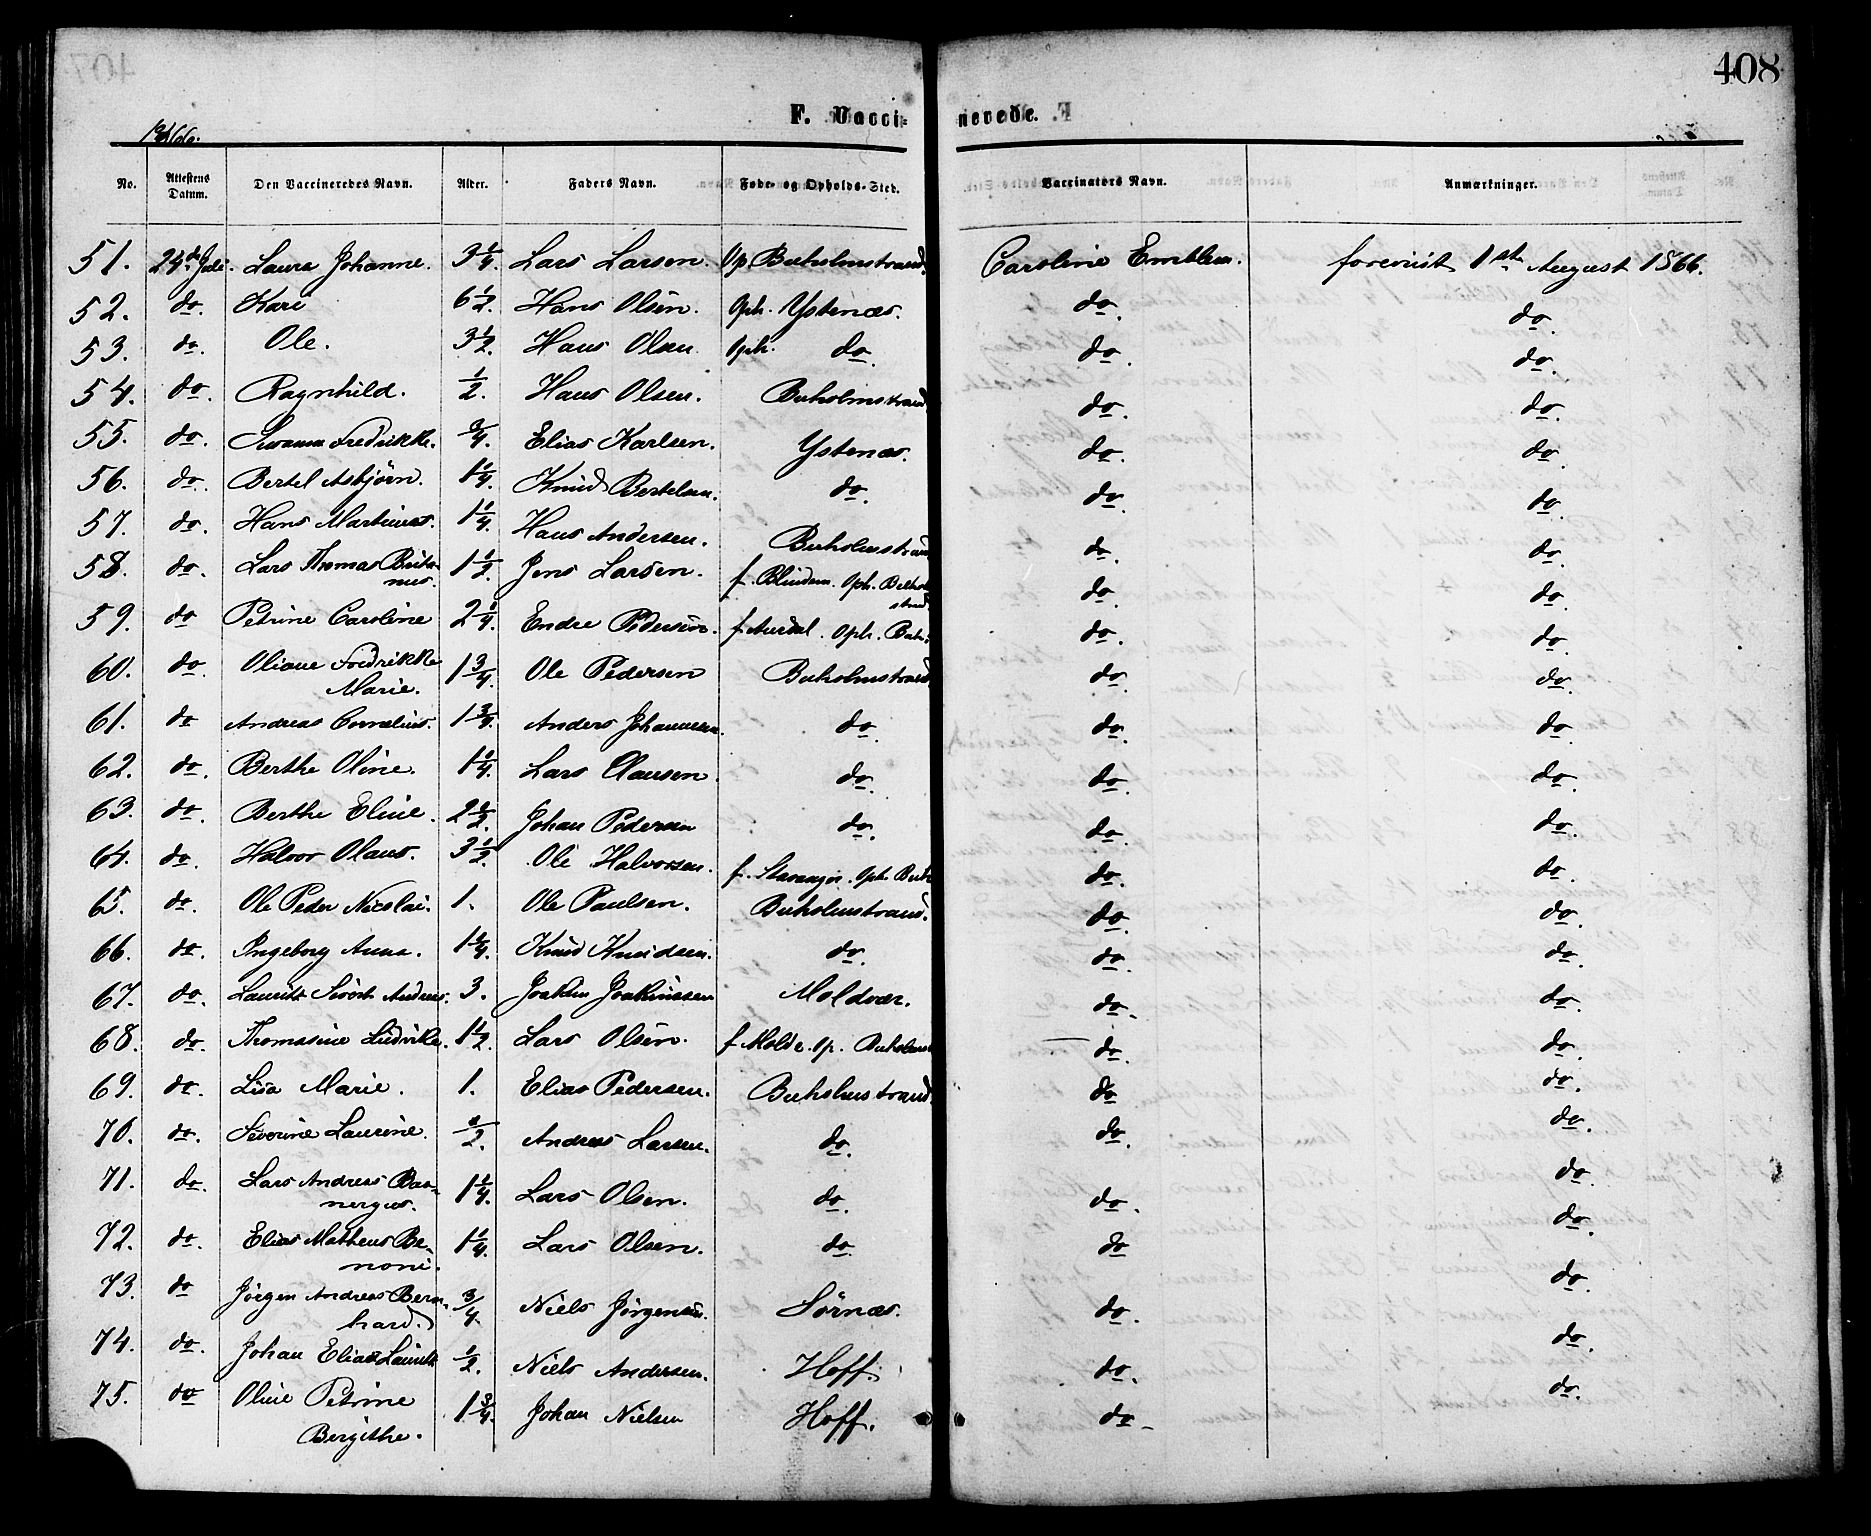 408
F. Vacci- nerede.
1866.
No. Attestens Datum. Den Vaccineredes Navn. Alder. Faders Navn. Føde- og Opholds-Sted. Vaccinators Navn. Anmærkninger.
51. 24de Juli. Laura Johanne. 3 1/4. Lars Larsen. Op. Buholmstrand. Caroline Emblem. foreviist 1ste August 1866.
52. do. Kari 6 1/2. Hans Olsen. Oph. Ystenæs. do. do.
53. do. Ole. 3 1/2. Hans Olsen Oph. do. do. do.
54. do. Ragnhild. 1/2. Hans Olsen. Buholmstrand. do. do.
55. do. Fredrikke. 3/4. Elias Karlsen. Ystenæs. do. do.
56. do. Bertel Asbjørn. 1 1/4. Knud Bertelsen. do. do. do.
57. do. Hans Martinus. 1 1/4. Hans Andersen. Buholmstrand do. do.
58. do. Lars Thomas 1 1/2. Jens Larsen. f. Blindem. Oph. Buholm
nus. strand.
do. do.
59. do Petrine Caroline 2 1/4. Endre Pedersen. f. Aurdal. Oph. Buh. do. do.
60. do. Oliane Fredrikke 1 3/4. Ole Pedersen Buholmstrand. do. do.
Marie.
61. do Andreas Cornelius. 1 3/4. Anders Johannesen. do. do. do.
62. do. Berthe Oline. 1 1/4. Lars Clausen. do. do. do.
63. do. Berthe Eline. 2 1/2. Johan Pedersen do. do. do.
64. do. Halvor Olaus. 3 1/2. Ole Halvorsen. f. Stavanger. Oph. Buh. do. do.
65. do. Ole Peder Nicolai. 1. Ole Paulsen. Buholmstrand. do. do.
66. do. Ingeborg Anna. 1 1/4. Knud Knudsen. do. do. do.
67. do. Laurits Sivert Andreas. 3. Joakim Joakimsen Moldvær. do. do.
68. do. Thomasine Ludvikke. 1 1/2. Lars Olsen. f Molde. Op. Buholms do. do.
69. do. Lisa Marie. 1. Elias Pedersen. Buholmstrand. do do.
70. do. Severine Laurine. 1/2. Andreas Larsen. do. do. do.
71. do. Lars Andreas 1 1/4. Lars Olsen. do. do. do.
72. do. Elias Matheus Be- 1 1/4. Lars Olsen. do. do do.
noni.
73. do Jørgen Andreas Bern- 3/4. Niels Jørgensen. Sörnæs. do. do.
hard.
74. do. Johan Elias Laurits 1/2. Niels Andersen. Hoff. do. do.
75. do Oline Petrine 1 3/4. Johan Nielsen Hoff. do. do.
Bergithe.